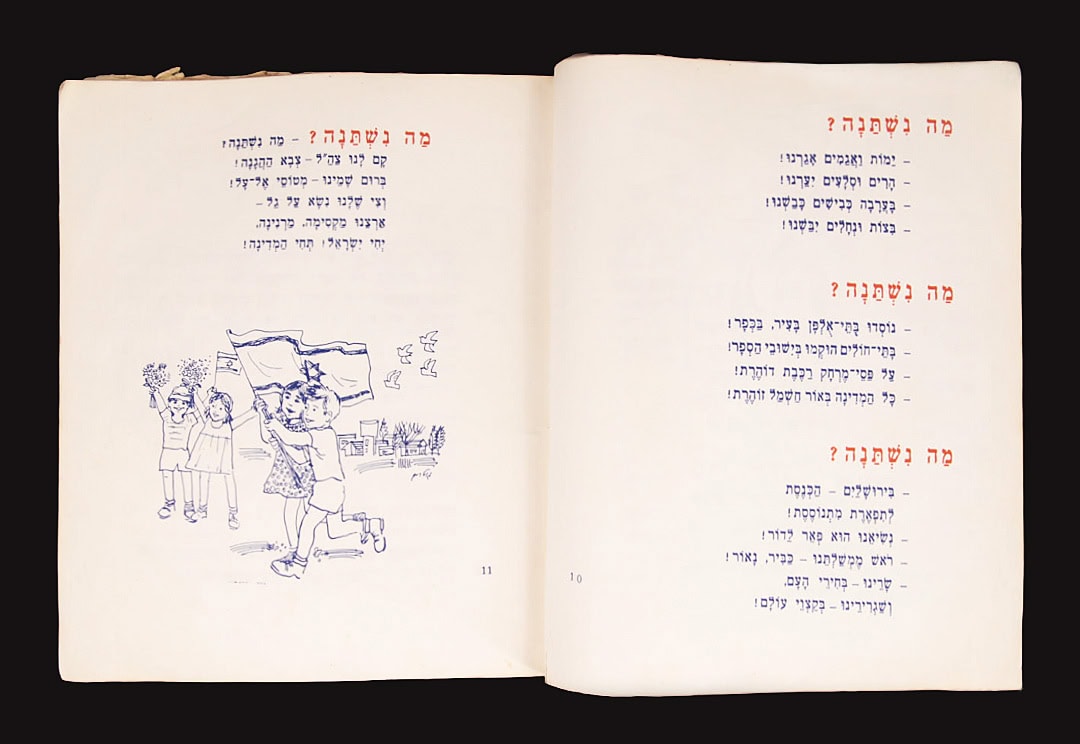 מַה נִשְׁתַּנָּה?
– יַמּוֹת וַאֲגַמִּים אָגַרְנוּ!
– הָרִים וּסְלָעִים יִעַרְנוּ!
– בָּעֲרָבָה כְּבִישִׁים כָּבַשְׁנוּ!
– בִּצּוֹת וּנְחָלִים יִבַּשְׁנוּ!
מַה נִשְׁתַּנָּה?
– נוֹסְדוּ בָּתֵּי־אֻלְפָּן בָּעִיר, בַּכְּפָר!
– בָּתֵּי־חוֹלִים הוּקְמוּ בְּיִשּׁוּבֵי הַסְּפָר!
– עַל פַּסֵּי־מֶרְחָק רַכֶּבֶת דּוֹהֶרֶת!
– כָּל הַמְּדִינָה בְּאוֹר חַשְׁמַל זוֹהֶרֶת!
מַה נִשְׁתַּנָּה?
– בִּירוּשָׁלַיִם – הַכְּנֶסֶת
לְתִפְאֶרֶת מִתְנוֹסֶסֶת!
– נְשִׂיאֵנוּ הוּא פְּאֵר לַדּוֹר!
– רֹאשׁ מֶמְשַׁלְתֵּנוּ – כַּבִּיר, נָאוֹר!
– שָׂרֵינוּ – בְּחִירֵי הָעָם,
וְשַׁגְרִירֵינוּ – בְּקַצְוֵי עוֹלָם!
10
מַה נִשְׁתַּנָּה? – מַה נִשְׁתַּנָּה?
קָם לָנוּ צַהַ"ל – צְבָא הַהֲגָנָה!
בְּרוּם שָׁמֵינוּ – מְטוֹסֵי אֶל־עָל!
וְצִי שֶׁלָּנוּ נִשָּׂא עַל גַּל –
אַרְצֵנוּ מַקְסִימָה, מַרְנִינָה,
יְחִי יִשְׂרָאֵל! תְּחִי הַמְּדִינָה!
11